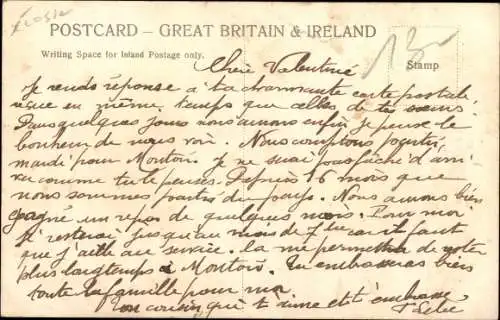 POSTCARD – GREAT BRITAIN & IRELAND
Writing Space for Inland Postage only.
Stamp
Chère Valentine
Je rends réponse à ta charmante carte postale,
reçue en même temps que celles de tes sœurs.
Dans quelques jours nous aurons enfin je pense le
bonheur de nous voir. Nous comptons partir
mardi pour Montoir. Je ne serai pas fâché d'arri
ver comme tu le penses. Depuis 16 mois que
nous sommes partis du pays. Nous avons bien
gagné un repos de quelques mois. Pour moi
je resterai jusqu'au mois de 7bre car il faut
que j'aille au service. la me permettra de rester
plus longtemps à Montoir. Tu embrasseras bien
toute la famille pour moi
ton cousin qui t'aime et t'embrasse